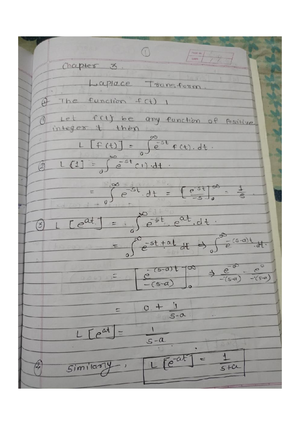 ①
Chapter 3
Laplace Transform
The function f(t) 1
① Let f(t) be any function of positive
integer t then
L [f(t)] = ∫₀^∞ e^-st f(t).dt
② L [1] = ∫₀^∞ e^-st (1).dt
= ∫₀^∞ e^-st dt = [e^-st/-s]₀^∞ = 1/s
③ L [e^at] = ∫₀^∞ e^-st . e^at . dt
= ∫₀^∞ e^-st+at dt ⇒ ∫₀^∞ e^-(s-a)t dt
= [e^-(s-a)t/-(s-a)]₀^∞ ⇒ e^-∞/-(s-a) - e^0/-(s-a)
= 0 + 1/s-a
L [e^at] = 1/s-a
④ Similarly, L [e^-at] = 1/s+a